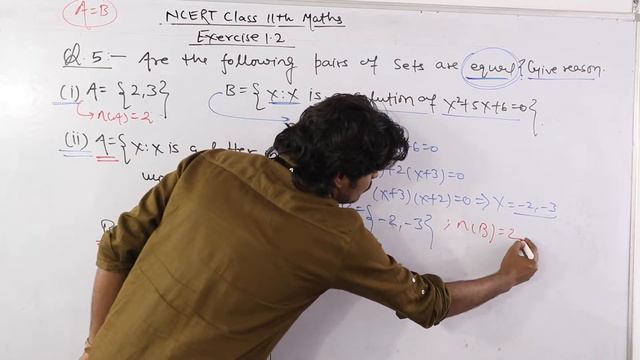 A=B
NCERT Class 11th Maths
Exercise 1.2
Q.5:- Are the following pairs of sets are equal? Give reason.
(i) A={2,3} B={x:x is solution of x²+5x+6=0}
n(A)=2
+6=0
(ii) A={x:x is a letter
+2(x+3)=0
(x+3)(x+2)=0 ⇒ x=-2,-3
={-2,-3} ; n(B)=2